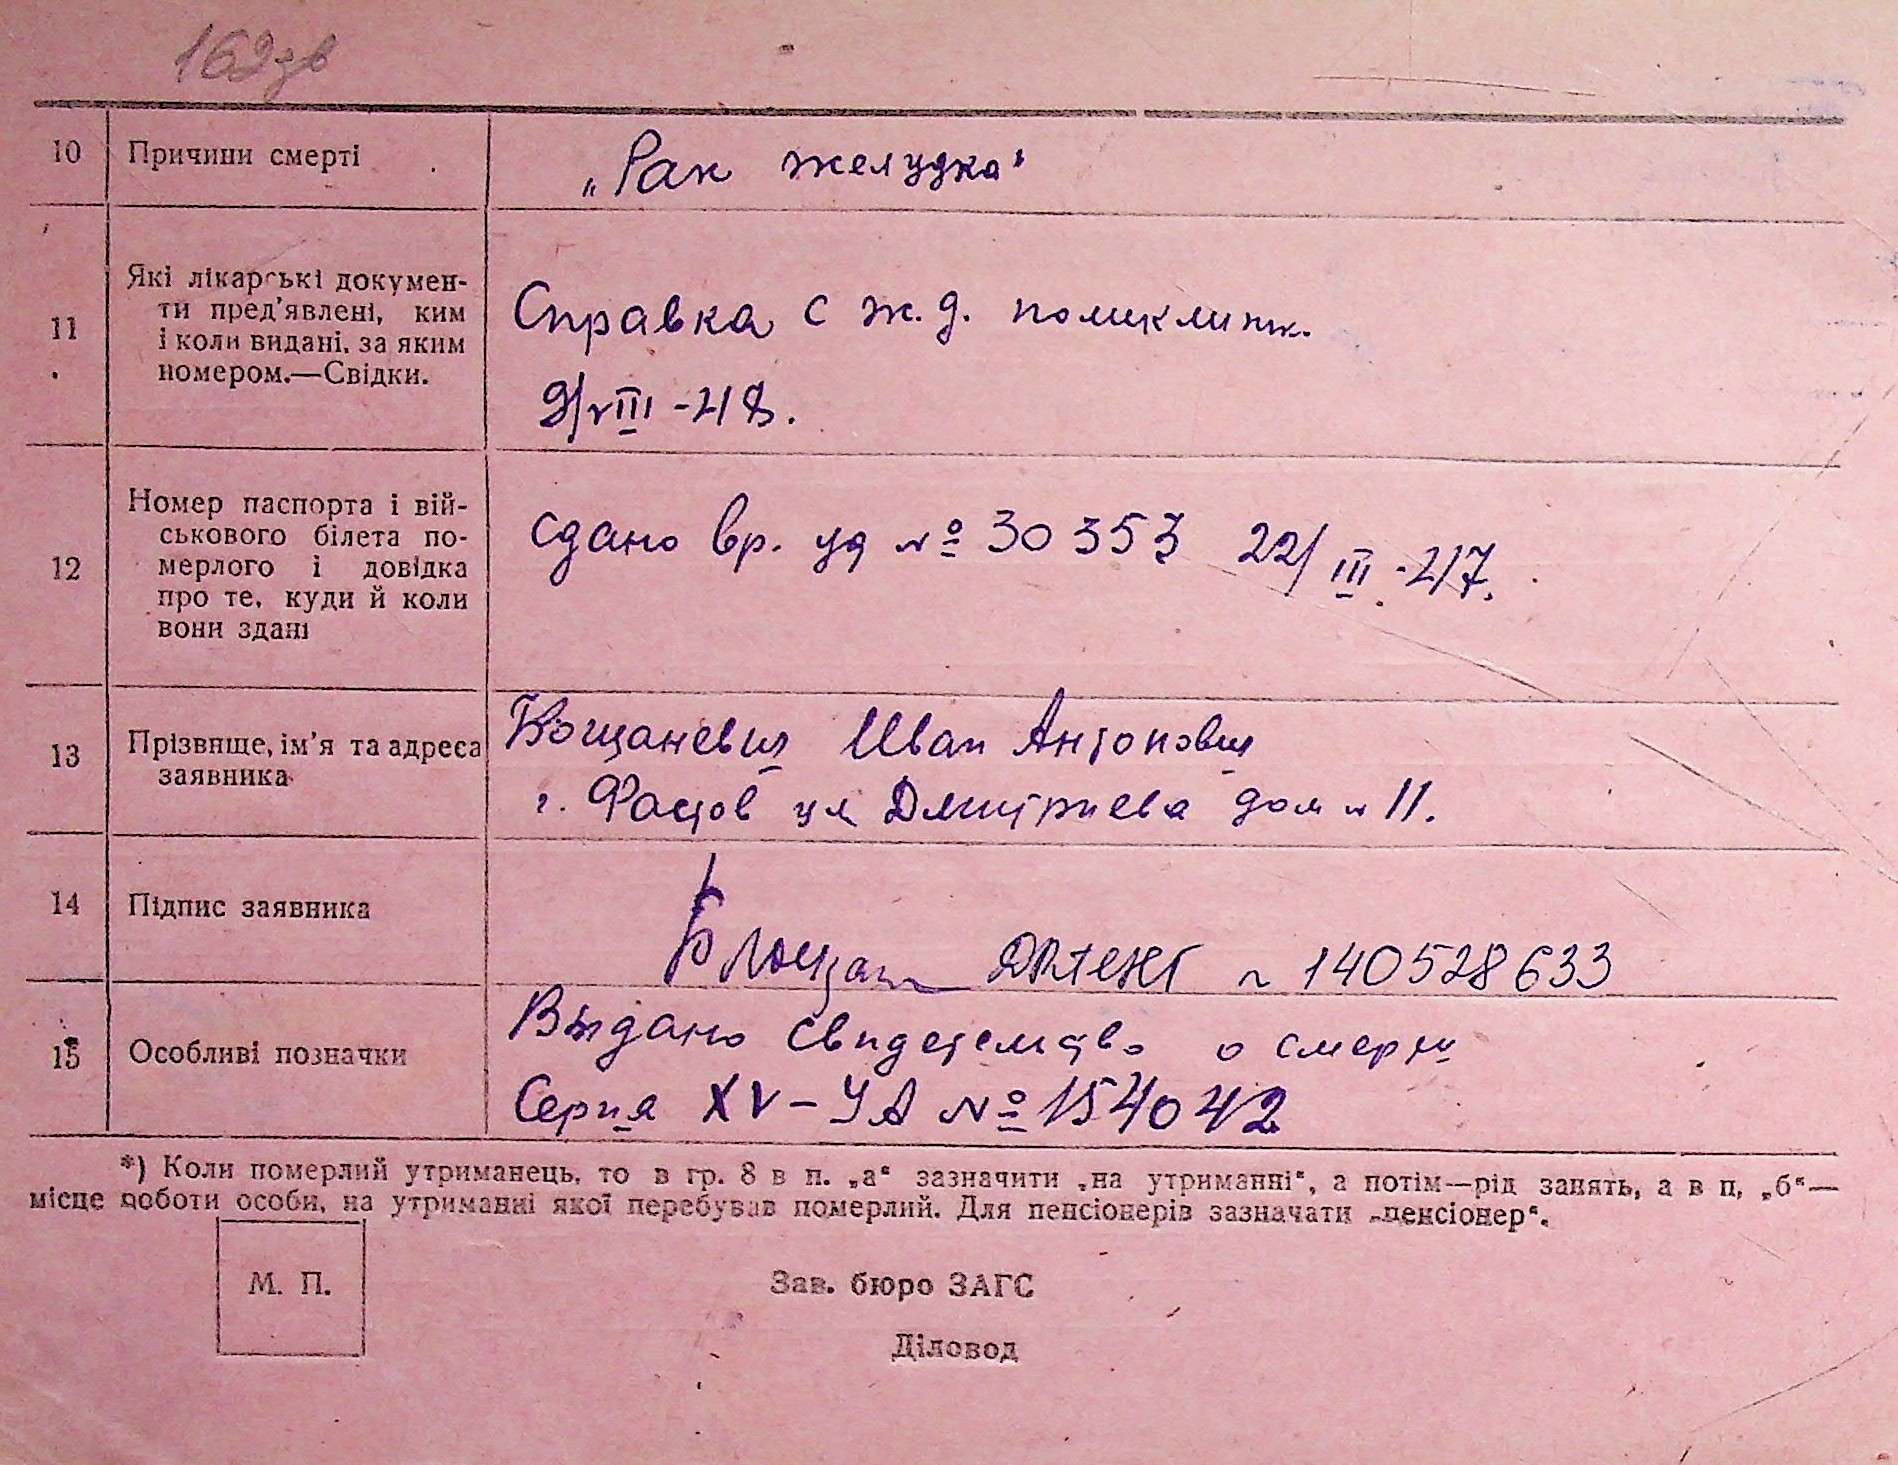 162зв
10 Причини смерті „Рак желудка"
11 Які лікарські докумен-
ти пред'явлені, ким
і коли видані, за яким
номером.—Свідки.
Справка с ж.д. поликлиник.
9/VIII-48.
12 Номер паспорта і вій-
ськового білета по-
мерлого і довідка
про те, куди й коли
вони здані
сдано вр. уд № 30353 22/III-47.
13 Прізвище, ім'я та адреса
заявника
Кощаневич Иван Антонович
г. Фастов ул Дмитриева дом № 11.
14 Підпис заявника
140528633
15 Особливі позначки
Выдано свидетельство о смерти
Серия XV-УА № 154042
*) Коли померлий утриманець, то в гр. 8 в п. „а“ зазначити „на утриманні“, а потім—рід занять, а в п, „б“—
місце роботи особи, на утриманні якої перебував померлий. Для пенсіонерів зазначати „пенсіонер“.
М. П.
Зав. бюро ЗАГС
Діловод